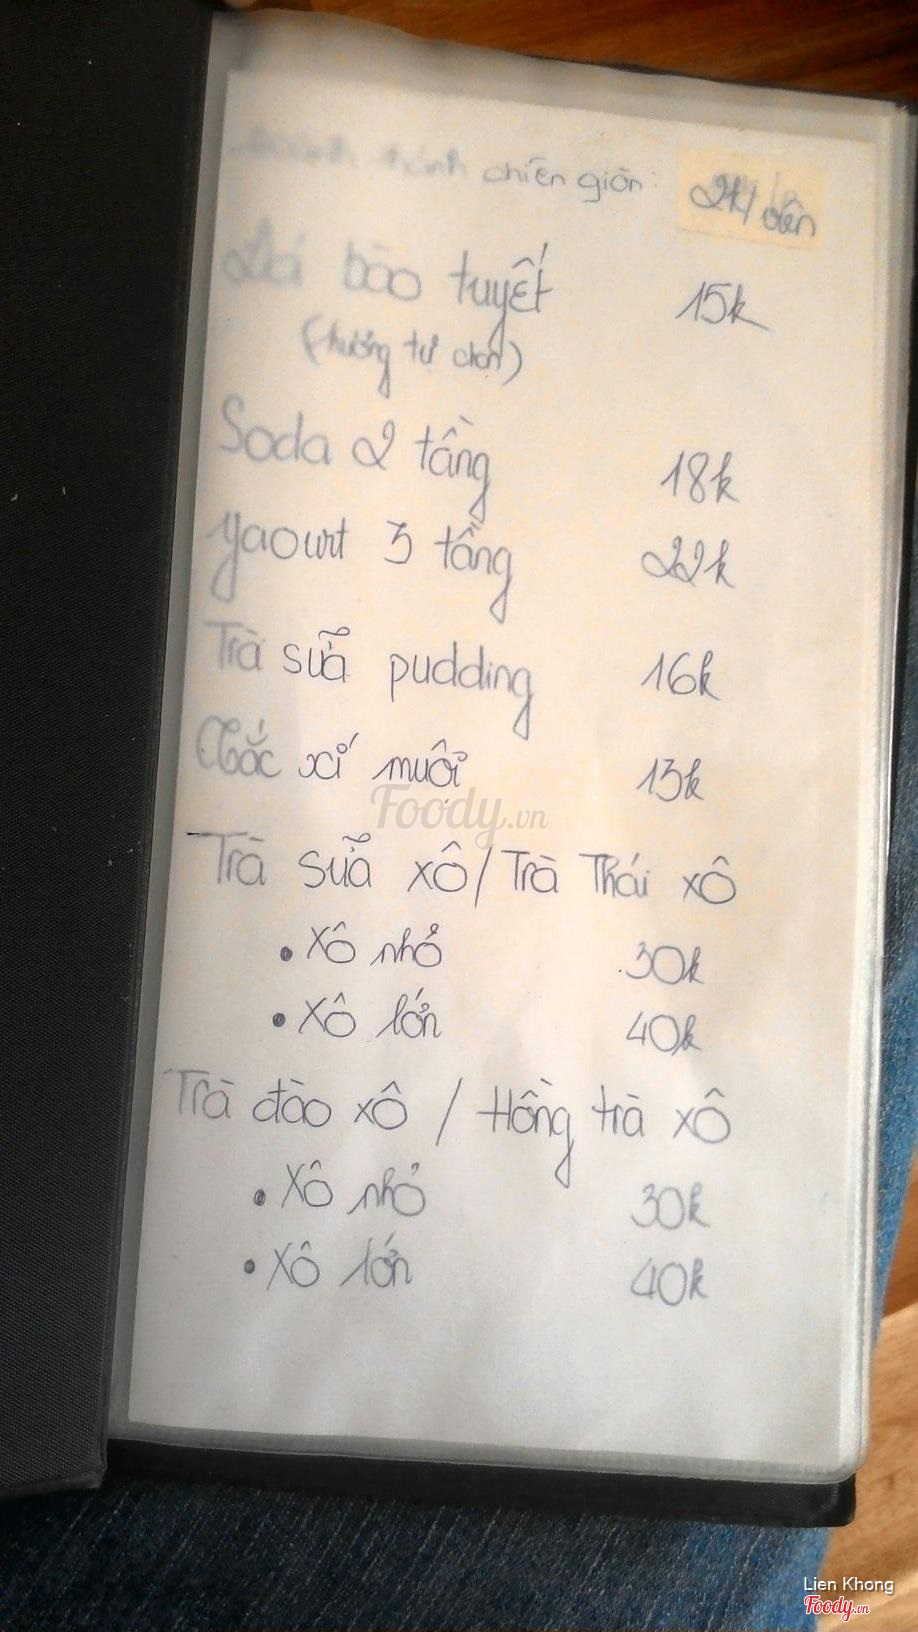 chiên giòn: 2k/viên
Đá bào tuyết 15k
(hương tự chọn)
Soda 2 tầng 18k
yaourt 3 tầng 22k
Trà sữa pudding 16k
Tắc xí muội 13k
Trà sữa xô / Trà Thái xô
• Xô nhỏ 30k
• Xô lớn 40k
Trà đào xô / Hồng trà xô
• Xô nhỏ 30k
• Xô lớn 40k
Foody.vn
Lien Khong
Foody.vn